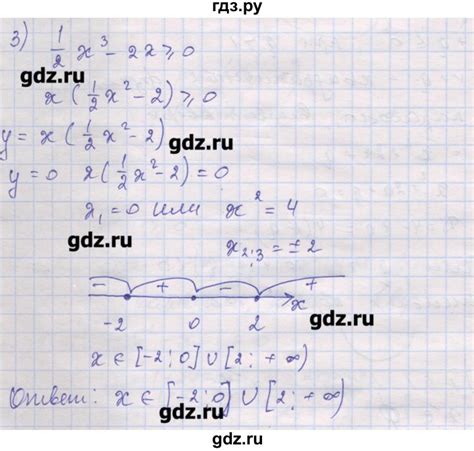 гдз.ру
3) 1/2 x³ - 2x ≥ 0
gdz.ru
x (1/2 x² - 2) ≥ 0
y = x (1/2 x² - 2)
gdz.ru
y = 0 x (1/2 x² - 2) = 0
x₁ = 0 или x² = 4
gdz.ru
x₂;₃ = ± 2
- + - + x
gdz.ru
-2 0 2
x ∈ [-2; 0] ∪ [2; +∞)
Ответ: x ∈ [-2; 0] ∪ [2; +∞)
gdz.ru